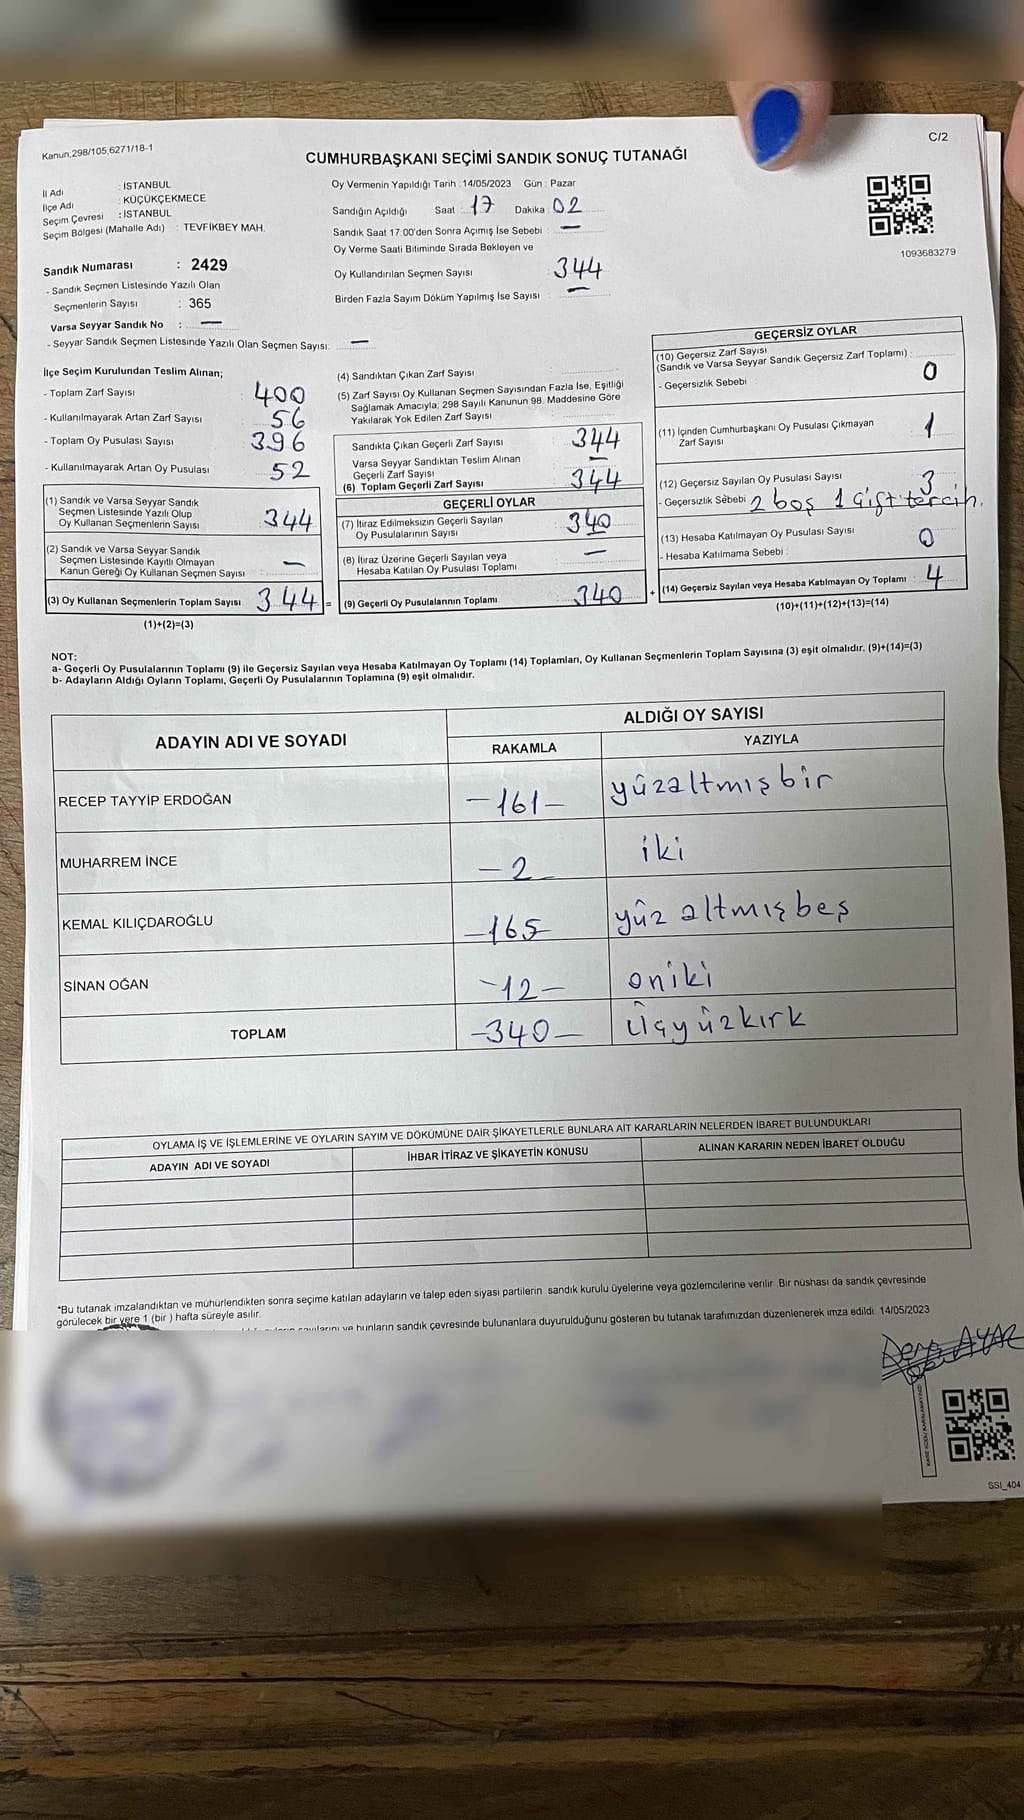 Kanun,298/105,6271/18-1
C/2
CUMHURBAŞKANI SEÇİMİ SANDIK SONUÇ TUTANAĞI
İl Adı : İSTANBUL
İlçe Adı : KÜÇÜKÇEKMECE
Seçim Çevresi : İSTANBUL
Seçim Bölgesi (Mahalle Adı) : TEVFİKBEY MAH.
Sandık Numarası : 2429
- Sandık Seçmen Listesinde Yazılı Olan
Seçmenlerin Sayısı : 365
Varsa Seyyar Sandık No : —
- Seyyar Sandık Seçmen Listesinde Yazılı Olan Seçmen Sayısı: —
Oy Vermenin Yapıldığı Tarih : 14/05/2023 Gün : Pazar
Sandığın Açıldığı Saat 17 Dakika 02
Sandık Saat 17:00'den Sonra Açımış İse Sebebi : —
Oy Verme Saati Bitiminde Sırada Bekleyen ve
Oy Kullandırılan Seçmen Sayısı : 344
Birden Fazla Sayım Döküm Yapılmış İse Sayısı : —
1093683279
İlçe Seçim Kurulundan Teslim Alınan;
- Toplam Zarf Sayısı 400
- Kullanılmayarak Artan Zarf Sayısı : 56
- Toplam Oy Pusulası Sayısı 396
- Kullanılmayarak Artan Oy Pusulası : 52
(1) Sandık ve Varsa Seyyar Sandık
Seçmen Listesinde Yazılı Olup
Oy Kullanan Seçmenlerin Sayısı : 344
(2) Sandık ve Varsa Seyyar Sandık
Seçmen Listesinde Kayıtlı Olmayan
Kanun Gereği Oy Kullanan Seçmen Sayısı : —
(3) Oy Kullanan Seçmenlerin Toplam Sayısı 344 =
(1)+(2)=(3)
(4) Sandıktan Çıkan Zarf Sayısı
(5) Zarf Sayısı Oy Kullanan Seçmen Sayısından Fazla İse, Eşitliği
Sağlamak Amacıyla, 298 Sayılı Kanunun 98. Maddesine Göre
Yakılarak Yok Edilen Zarf Sayısı
Sandıkta Çıkan Geçerli Zarf Sayısı : 344
Varsa Seyyar Sandıktan Teslim Alınan
Geçerli Zarf Sayısı : —
(6) Toplam Geçerli Zarf Sayısı : 344
GEÇERLİ OYLAR
(7) İtiraz Edilmeksizin Geçerli Sayılan
Oy Pusulalarının Sayısı : 340
(8) İtiraz Üzerine Geçerli Sayılan veya
Hesaba Katılan Oy Pusulası Toplamı : —
(9) Geçerli Oy Pusulalarının Toplamı : 340 +
GEÇERSİZ OYLAR
(10) Geçersiz Zarf Sayısı
(Sandık ve Varsa Seyyar Sandık Geçersiz Zarf Toplamı) : 0
- Geçersizlik Sebebi :
(11) İçinden Cumhurbaşkanı Oy Pusulası Çıkmayan
Zarf Sayısı : 1
(12) Geçersiz Sayılan Oy Pusulası Sayısı : 3
- Geçersizlik Sebebi : 2 boş 1 çift tercih.
(13) Hesaba Katılmayan Oy Pusulası Sayısı : 0
- Hesaba Katılmama Sebebi :
(14) Geçersiz Sayılan veya Hesaba Katılmayan Oy Toplamı : 4
(10)+(11)+(12)+(13)=(14)
NOT:
a- Geçerli Oy Pusulalarının Toplamı (9) ile Geçersiz Sayılan veya Hesaba Katılmayan Oy Toplamı (14) Toplamları, Oy Kullanan Seçmenlerin Toplam Sayısına (3) eşit olmalıdır. (9)+(14)=(3)
b- Adayların Aldığı Oyların Toplamı, Geçerli Oy Pusulalarının Toplamına (9) eşit olmalıdır.
ADAYIN ADI VE SOYADI
ALDIĞI OY SAYISI
RAKAMLA YAZIYLA
RECEP TAYYİP ERDOĞAN -161- yüzaltmışbir
MUHARREM İNCE -2- iki
KEMAL KILIÇDAROĞLU -165 yüz altmışbeş
SİNAN OĞAN -12- oniki
TOPLAM -340- üçyüzkırk
OYLAMA İŞ VE İŞLEMLERİNE VE OYLARIN SAYIM VE DÖKÜMÜNE DAİR ŞİKAYETLERLE BUNLARA AİT KARARLARIN NELERDEN İBARET BULUNDUKLARI
ADAYIN ADI VE SOYADI İHBAR İTİRAZ VE ŞİKAYETİN KONUSU ALINAN KARARIN NEDEN İBARET OLDUĞU
*Bu tutanak imzalandıktan ve mühürlendikten sonra seçime katılan adayların ve talep eden siyasi partilerin sandık kurulu üyelerine veya gözlemcilerine verilir. Bir nüshası da sandık çevresinde
görülecek bir yere 1 (bir) hafta süreyle asılır.
ve bunların sandık çevresinde bulunanlara duyurulduğunu gösteren bu tutanak tarafımızdan düzenlenerek imza edildi. 14/05/2023
SSI_404